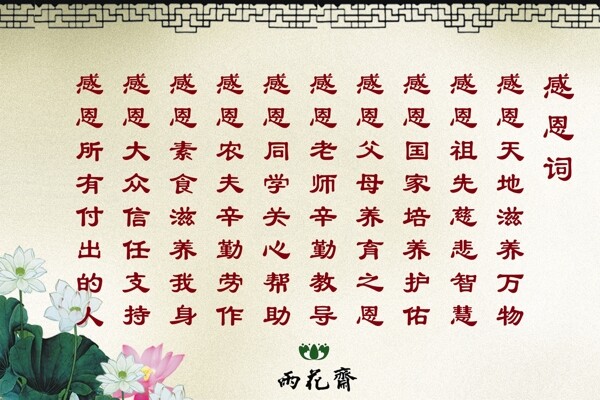 感恩词
感恩天地滋养万物
感恩祖先慈悲智慧
感恩国家培养护佑
感恩父母养育之恩
感恩老师辛勤教导
感恩同学关心帮助
感恩农夫辛勤劳作
感恩素食滋养我身
感恩大众信任支持
感恩所有付出的人
雨花齋